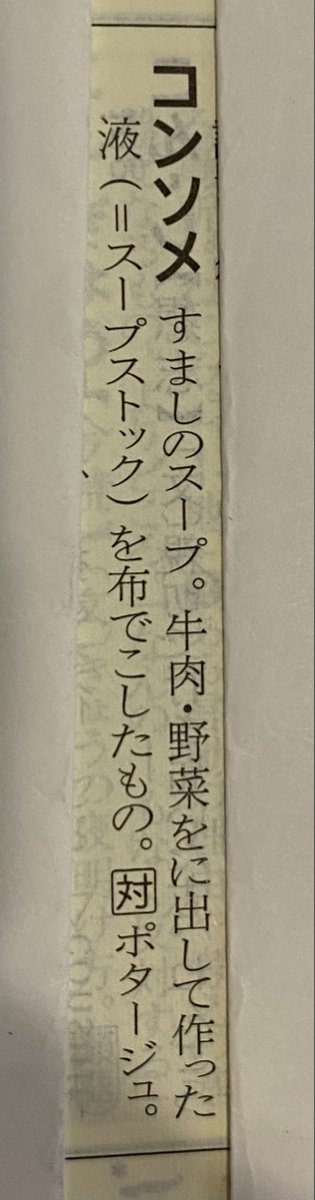 コンソメ すましのスープ。牛肉・野菜をに出して作った
液(=スープストック)を布でこしたもの。対ポタージュ。